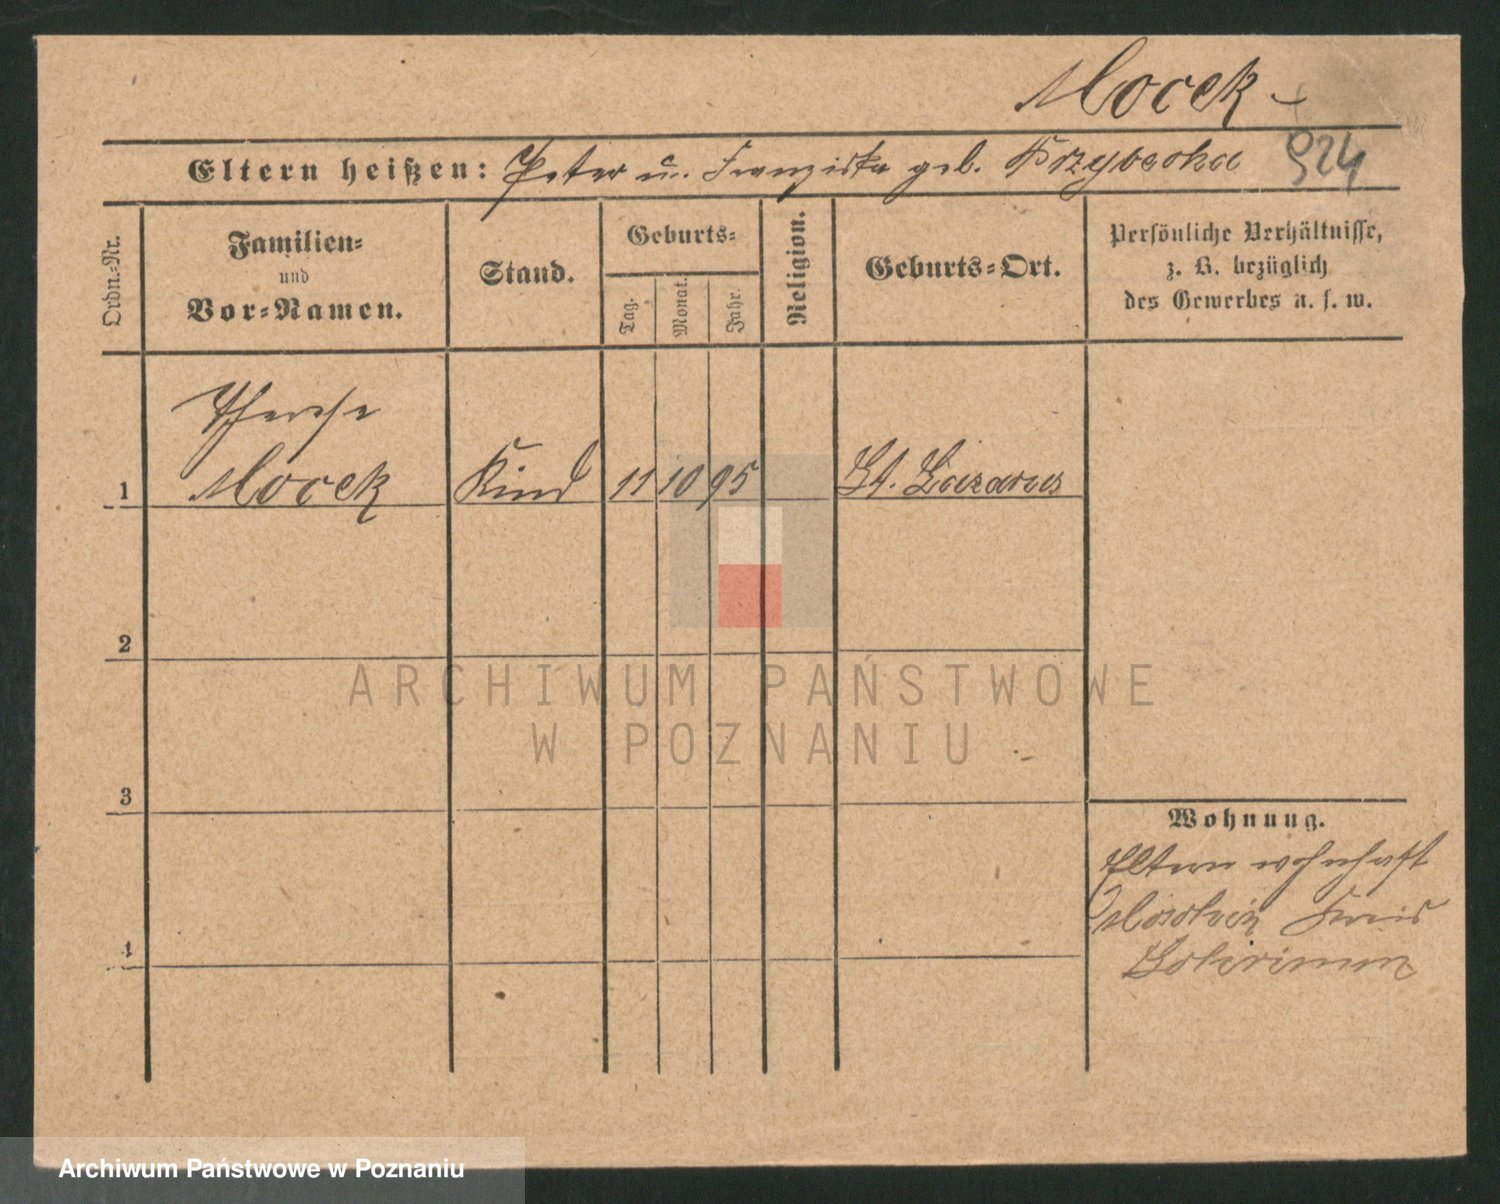 Mocek
Eltern heißen: Peter u. Franziska geb. Przybecka 924
Ordn.-Nr.
Familien-
und
Vor-Namen.
Stand.
Geburts-
Tag.
Monat.
Jahr.
Religion.
Geburts-Ort.
Persönliche Verhältnisse,
z. B. bezüglich
des Gewerbes u. s. w.
Therese
1 Mocek Kind 11 10 95 St. Lazarus
2
3
4
Wohnung.
Eltern wohnhaft
Kreis
ARCHIWUM PAŃSTWOWE
W POZNANIU
Archiwum Państwowe w Poznaniu